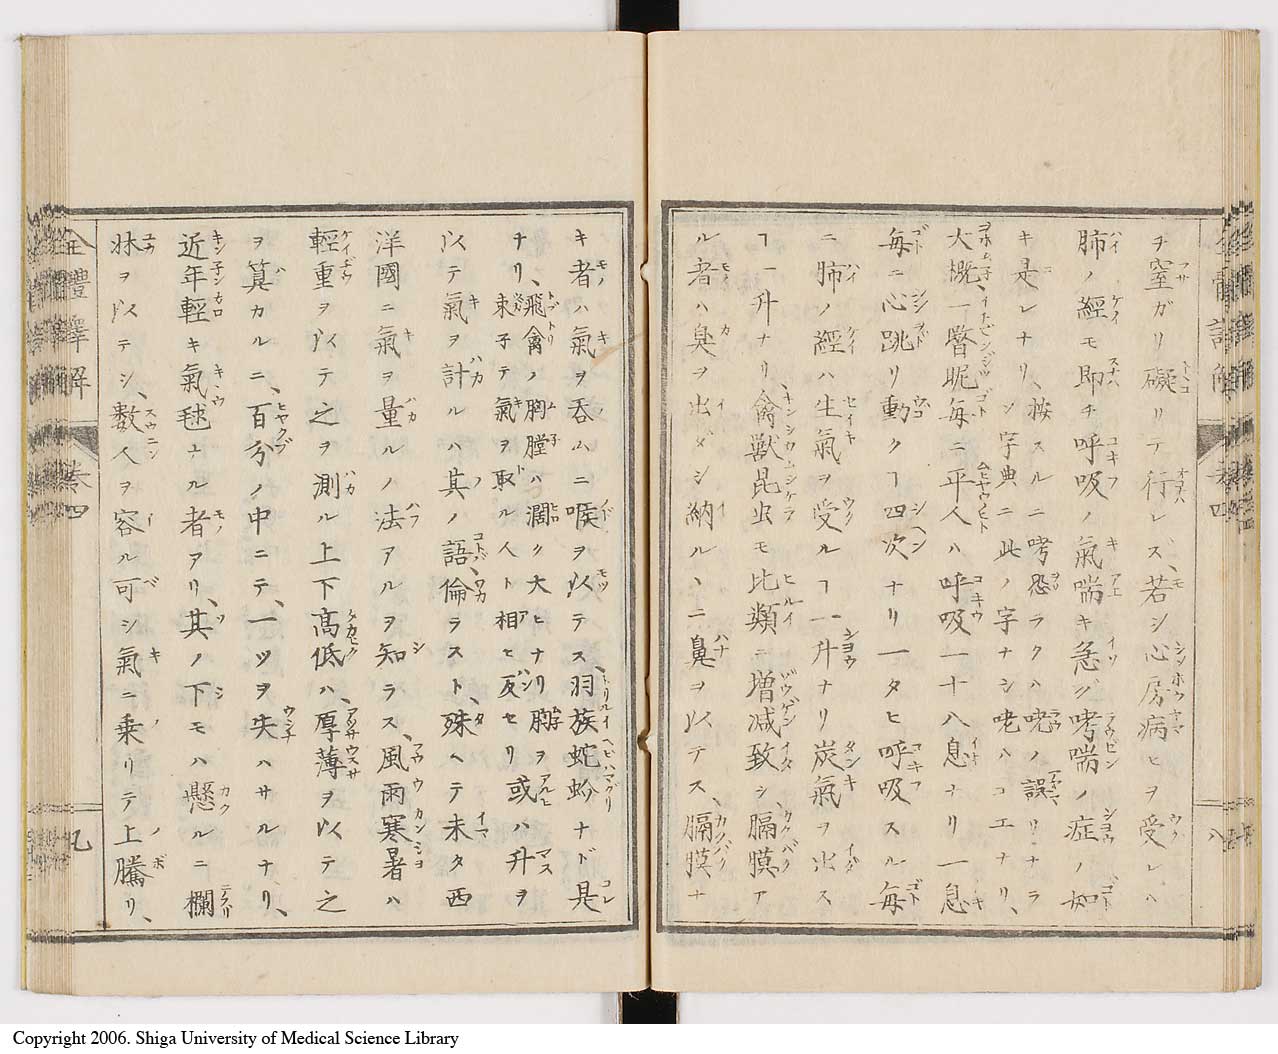 ヲ窒ガリ礙リテ行レズ、若シ心房病ヒヲ受レハ
肺ノ經モ即チ呼吸ノ氣喘キ急ジ哮喘ノ症ノ如
キ是レナリ、按スルニ哮恐ラクハ咾ノ誤リナラ
ン字典ニ此ノ字ナシ咾ハコエナリ、
大概一瞥眤毎ニ平人ハ呼吸一十八息ナリ一息
毎ニ心跳リ動クヿ四次ナリ一タヒ呼吸スル毎
ニ肺ノ經ハ生氣ヲ受ルヿ一升ナリ炭氣ヲ出ス
ヿ一升ナリ、禽獸昆虫モ比類ニ増减致シ、膈膜ア
ル者ハ臭ヲ出ダシ納ル、ニ鼻ヲ以テス、膈膜ナ
キ者ハ氣ヲ呑ムニ喉ヲ以テス、羽族蛇蚧ナド是
ナリ、飛禽ノ胸膛ハ濶ク大ヒナリ胸ヲ
束子テ氣ヲ取ル人ト相ヒ反セリ或ハ升ヲ
以テ氣ヲ計ルハ其ノ語倫ラスト、殊ヘテ未タ西
洋國ニ氣ヲ量ルノ法アルヲ知ラス、風雨寒暑ハ
輕重ヲ以テ之ヲ測ル上下髙低ハ、厚薄ヲ以テ之
ヲ算カルニ、百分ノ中ニテ、一ツヲ失ハサルナリ、
近年輕キ氣毬ユル者ヲリ、其ノ下モハ懸ルニ欄
牀ヲ以テシ、数人ヲ容ル可シ氣ニ乗リテ上騰リ、
全體譯解
卷四
九
Copyright 2006. Shiga University of Medical Science Library